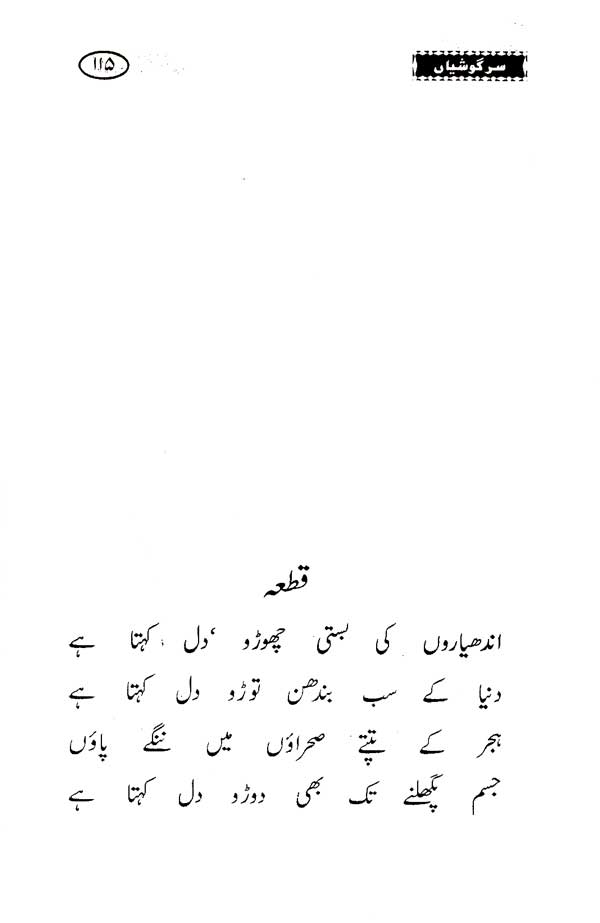 سرگوشیاں
۱۱۵
قطعہ
اندھیاروں کی بستی چھوڑو ‘دل کہتا ہے
دنیا کے سب بندھن توڑو دل کہتا ہے
ہجر کے تپتے صحراؤں میں ننگے پاؤں
جسم پگھلنے تک بھی دوڑو دل کہتا ہے